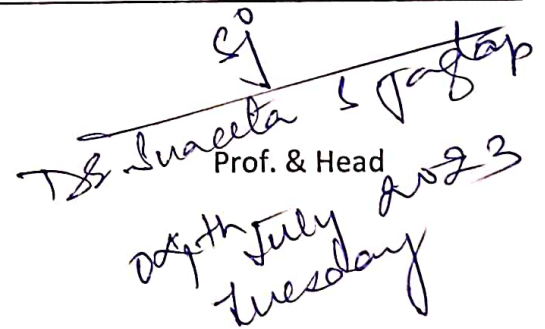 sj
Dr. Suneeta S Jagtap
Prof. & Head
04th July 2023
Tuesday